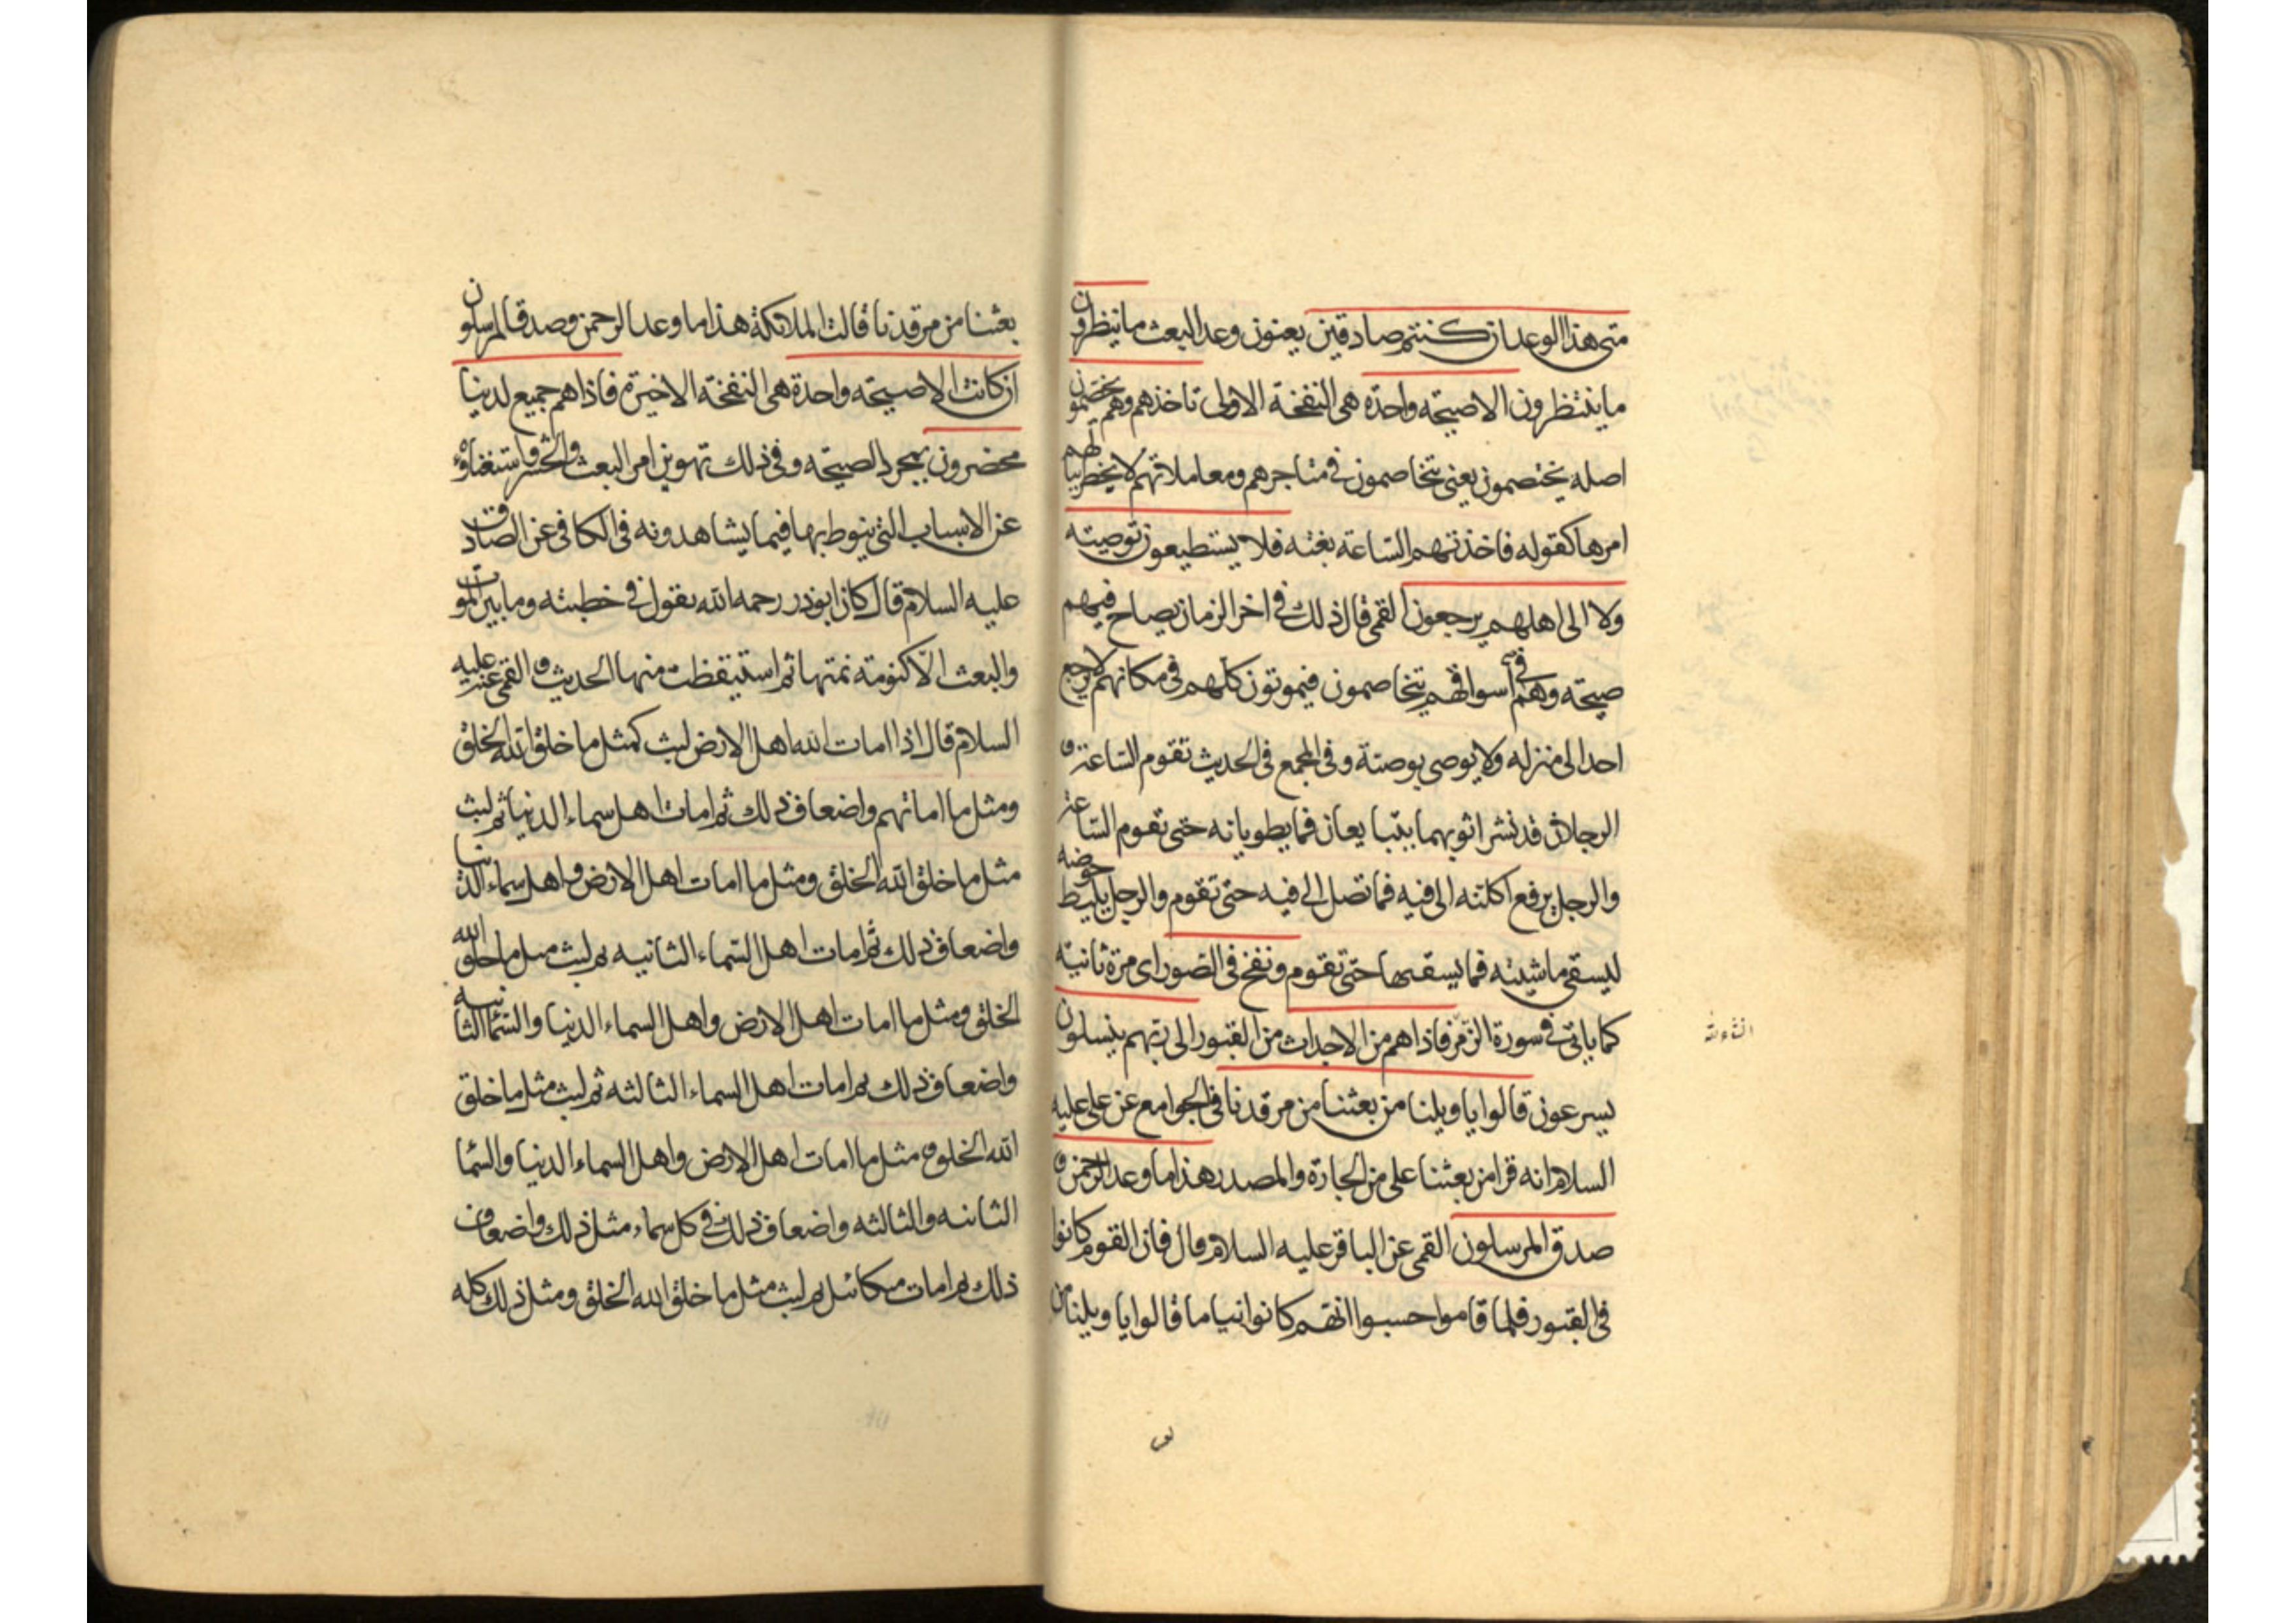 متى هذا الوعد ان كنتم صادقين يعنون وعد البعث ما ينظرون
ما ينتظرون الا صيحة واحدة هى النفخة الاولى تاخذهم وهم يخصمون
اصله يختصمون يعنى يتخاصمون فى متاجرهم ومعاملاتهم لا يخطر ببالهم
امرها كقوله فاخذتهم الساعة بغتة فلا يستطيعون توصية
ولا الى اهلهم يرجعون القمى قال ذلك فى اخر الزمان يصاح فيهم
صيحة وهم فى اسواقهم يتخاصمون فيموتون كلهم فى مكانهم لا يرجع
احد الى منزله ولا يوصى بوصية وفى المجمع فى الحديث تقوم الساعة و
الرجلان قد نشرا ثوبهما يتبايعان فما يطويانه حتى تقوم الساعة
والرجل يرفع اكلته الى فيه فما تصل الى فيه حتى تقوم والرجل يليط حوضه
ليسقى ماشيته فما يسقيها حتى تقوم ونفخ فى الصور اى مرة ثانية
كما ياتى فى سورة الزمر فاذا هم من الاجداث من القبور الى ربهم ينسلون
انشاء الله
يسرعون قالوا يا ويلنا من بعثنا من مرقدنا فى الجوامع عن على عليه
السلام انه قرا من بعثنا على من الجارة والمصدر هذا ما وعد الرحمن و
صدق المرسلون القمى عن الباقر عليه السلام قال فان القوم كانوا
فى القبور فلما قاموا حسبوا انهم كانوا نياما قالوا يا ويلنا من
بعثنا من مرقدنا قالت الملائكة هذا ما وعد الرحمن وصدق المرسلون
ان كانت الا صيحة واحدة هى النفخة الاخيرة فاذا هم جميع لدينا
محضرون بمجرد الصيحة وفى ذلك تهوين امر البعث والحشر واستغناؤه
عن الاسباب التى ينوط بها فيما يشاهدونه فى الكافى عن الصادق
عليه السلام قال كان ابوذر رحمه الله يقول فى خطبته وما بين الموت
والبعث الا كنومة نمتها ثم استيقظت منها الحديث و القمى عنه عليه
السلام قال اذا امات الله اهل الارض لبث كمثل ما خلق الله الخلق
ومثل ما اماتهم واضعاف ذلك ثم امات اهل سماء الدنيا ثم لبث
مثل ما خلق الله الخلق ومثل ما امات اهل الارض واهل سماء الدنيا
واضعاف ذلك ثم امات اهل السماء الثانيه ثم لبث مثل ما خلق الله
الخلق ومثل ما امات اهل الارض واهل السماء الدنيا والسماء الثانيه
واضعاف ذلك ثم امات اهل السماء الثالثه ثم لبث مثل ما خلق
الله الخلق و مثل ما امات اهل الارض واهل السماء الدنيا والسما
الثانيه والثالثه واضعاف ذلك فى كل سماء مثل ذلك واضعاف
ذلك ثم امات ميكائيل ثم لبث مثل ما خلق الله الخلق ومثل ذلك كله